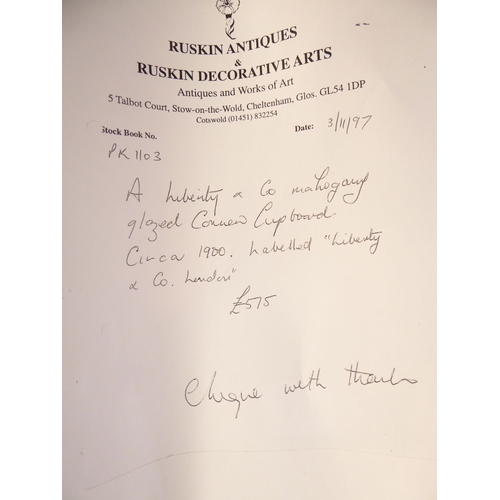 RUSKIN ANTIQUES
&
RUSKIN DECORATIVE ARTS
Antiques and Works of Art
5 Talbot Court, Stow-on-the-Wold, Cheltenham, Glos. GL54 1DP
Cotswold (01451) 832254
Stock Book No. Date: 3/11/97
PK1103
A Liberty & Co mahogany
glazed Corner Cupboard
Circa 1900. Labelled "Liberty
& Co. London"
£575
Cheque with thanks